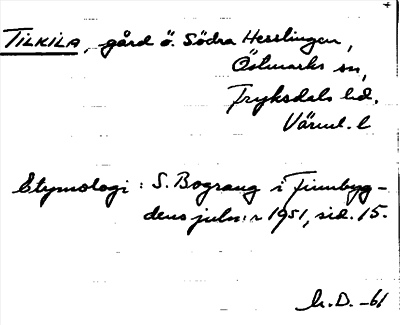 TILKILA, gård ö. Södra Hesslingen,
Östmarks sn,
Fryksdals hd.
Värml. l
Etymologi: S. Bograng i Finnbyg-
dens julnr 1951, sid. 15.
D. -61